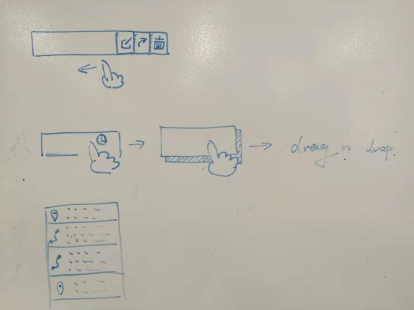 drag n drop